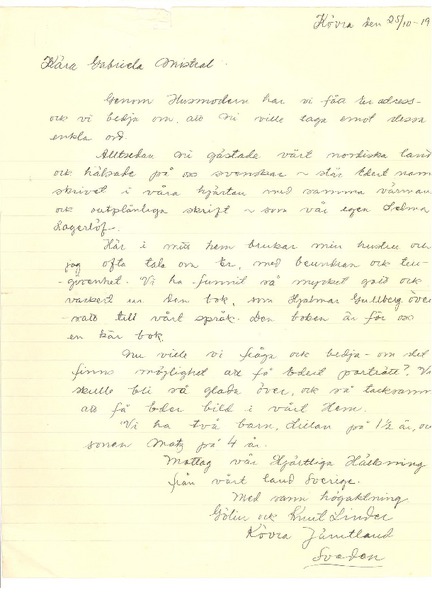 Kövra den 25/10-19
Kära Gabriela Mistral.
Genom Husmodern har vi fått er adress-
och vi bedja om, att Ni ville taga emot dessa
enkla ord.
Alltsedan Ni gästade vårt nordiska land
och hälsade på oss svenskar - står Edert namn
skrivet i våra hjärtan med samma värman
och outplånliga skrift - som vår egen Selma
Lagerlöf.
Här i mitt hem brukar min hustru och
jag ofta tala om Er, med beundran och till-
givenhet. Vi ha funnit så mycket gott och
vackert ur den bok, som Hjalmar Gullberg över-
satt till vårt språk. Den boken är för oss
en kär bok.
Nu ville vi fråga och bedja - om det
finns möjlighet att få Edert porträtt? Vi
skulle bli så glada över, och så tacksamma
att få Eder bild i vårt hem.
Vi ha två barn, dillan på 1½ år, och
sonen Matz på 4 år.
Mottag vår Hjärtliga Hälsning
från vårt land Sverige.
Med varm högaktning
Gölin och Knut Linder
Kövra Jämtland
Sveden